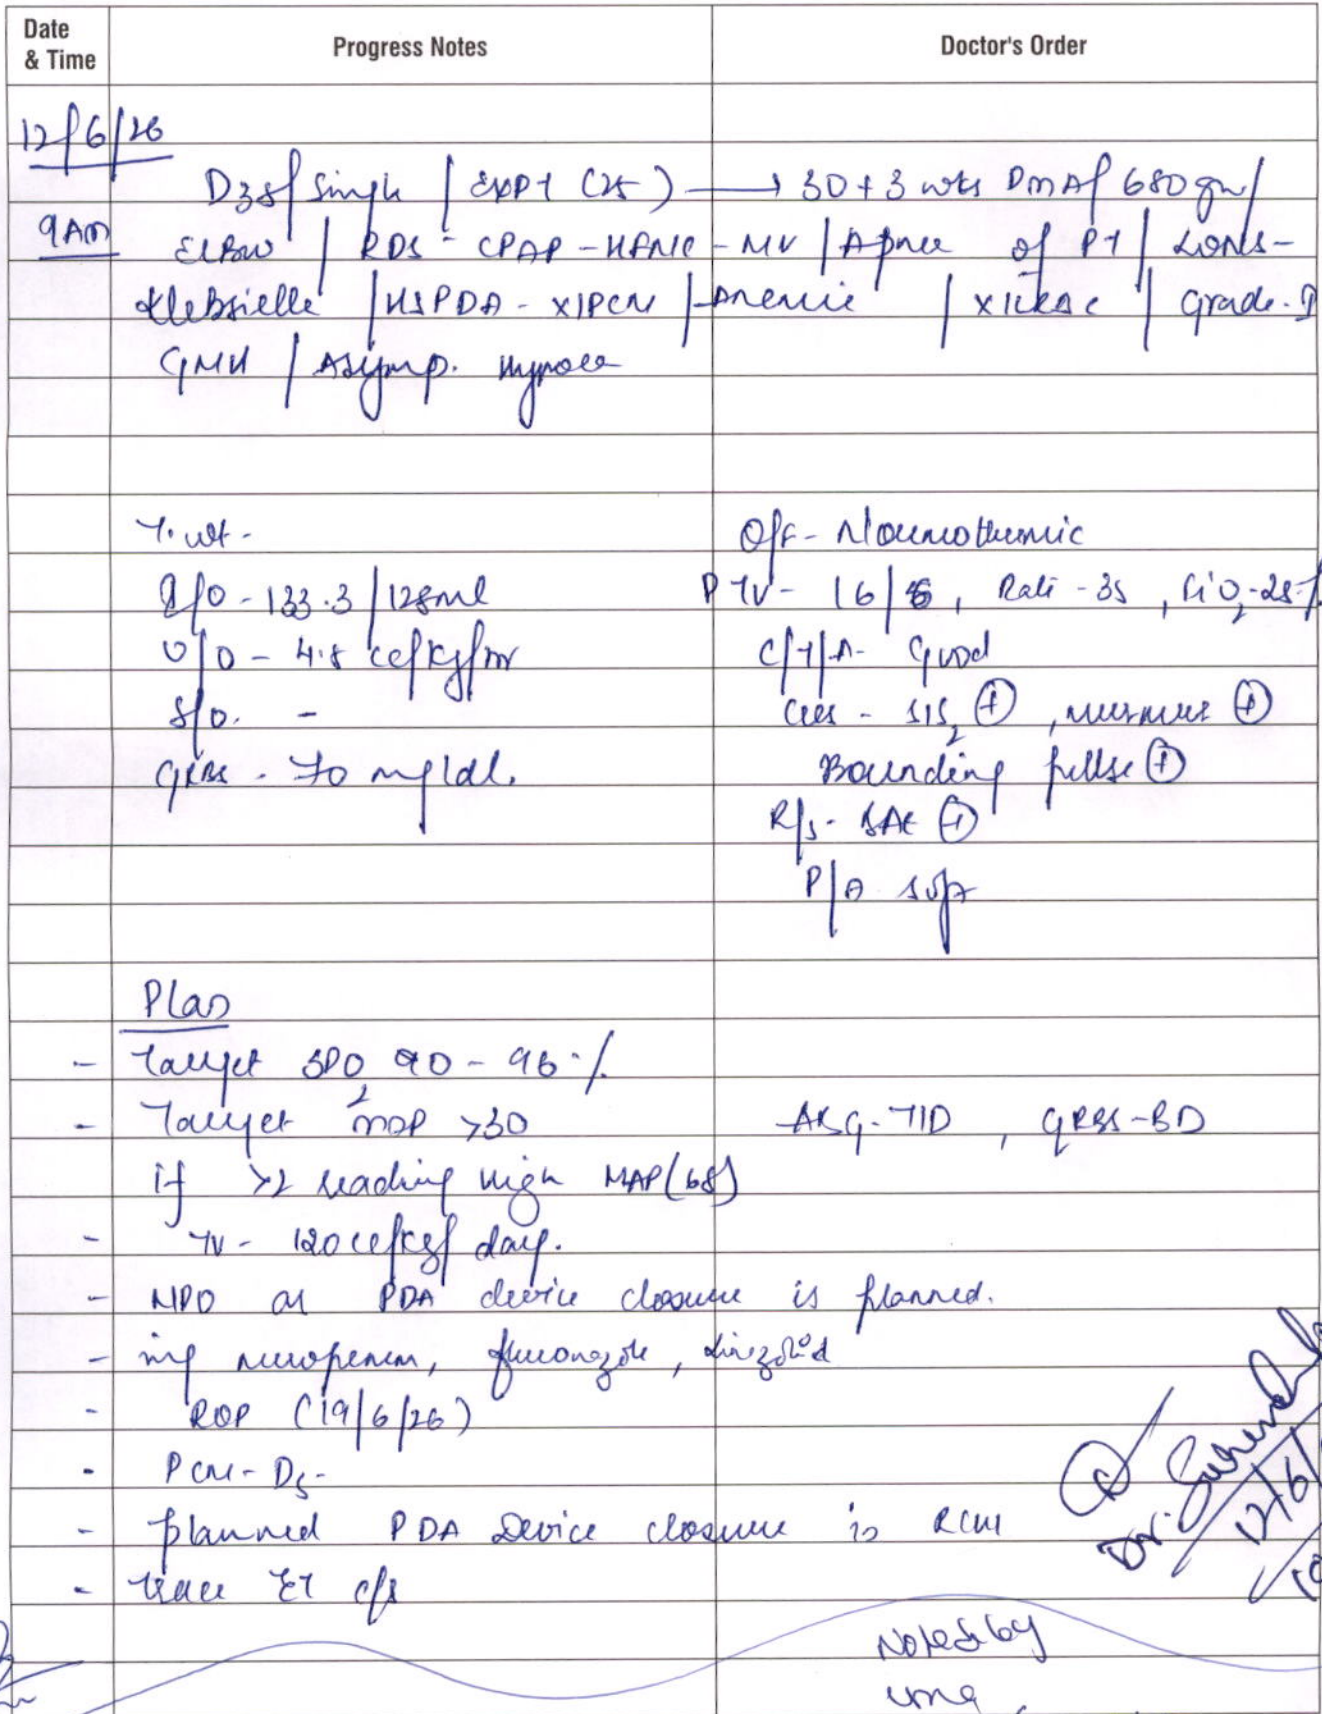 Date & Time
Progress Notes
Doctor's Order
12/6/26
D38/ Singh / EXPT (25) → 30+3 wks PMA/ 680 gm/
9AM
ELBW / RDS - CPAP - HFNC - MV / Apnea of PT / LONS -
Klebsiella / HSPDA - X1PCM / Anemia / X1 / Grade-I
GMH / Asymp.
T. wt -
I/O - 133.3 / 128ml
U/O - 4.8 cc/kg/hr
S/O. -
GRBS - 70 mg/dl.
O/E - Normothermic
PTV - 16/6, Rate - 35, FiO2 - 25%
C/T/A - Good
CVS - S1S2 ⊕, murmur ⊕
Bounding pulse ⊕
R/S - BAE ⊕
P/A soft
Plan
- Target SPO2 90 - 96 %
- Target MAP >30
ABG - TID, GRBS - BD
if >2 reading high MAP (68)
- TV - 120 cc/kg/ day.
- NPO as PDA device closure is planned.
- inj meropenem, fluconazole, linezolid
- ROP (19/6/26)
- PCM - D5 -
- planned PDA Device closure is RCM
- trace ET c/s
Dr.
12/6/
Noted by
uma